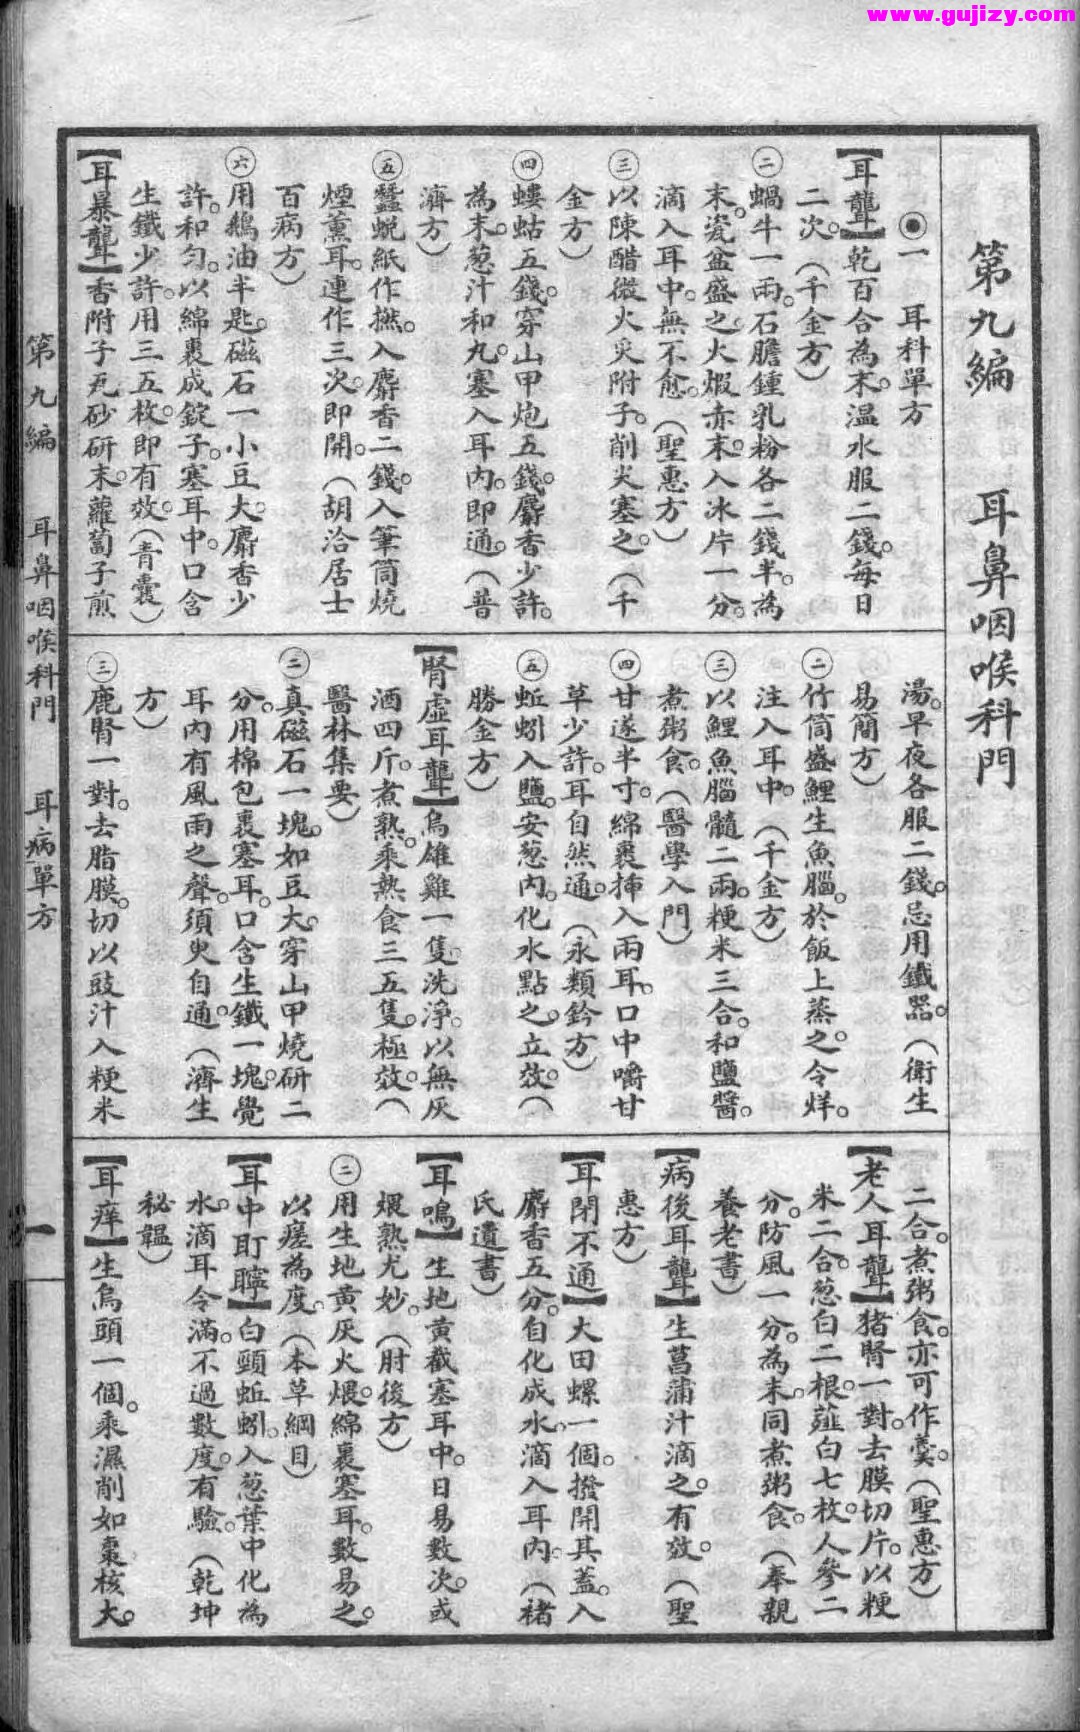 www.gujizy.com
第九編　耳鼻咽喉科門
◉一　耳科單方
【耳聾】乾百合為末。温水服二錢。每日
二次。（千金方）
㊁蝸牛一兩。石膽鍾乳粉各二錢半。為
末。瓷盆盛之火煅赤。末。入冰片一分。
滴入耳中。無不愈。（聖惠方）
㊂以陳醋微火炙附子。削尖塞之。（千
金方）
㊃螻蛄五錢。穿山甲炮五錢。麝香少許。
為末。葱汁和丸。塞入耳內。即通。（普
濟方）
㊄蠶蜕紙作撚。入麝香二錢。入筆筒燒
煙薰耳。連作三次。即開。（胡洽居士
百病方）
㊅用鵝油半匙。磁石一小豆大。麝香少
許。和勻。以綿裹成錠子。塞耳中。口含
生鐵少許。用三五枚。即有效。（青囊）
【耳暴聾】香附子瓦砂研末。蘿蔔子煎
湯。早夜各服二錢。忌用鐵器。（衛生
易簡方）
㊁竹筒盛鯉生魚腦。於飯上蒸之。令烊。
注入耳中。（千金方）
㊂以鯉魚腦髓二兩。粳米三合。和鹽醬。
煮粥食。（醫學入門）
㊃甘遂半寸。綿裹揷入兩耳。口中嚼甘
草少許。耳自然通。（永類鈐方）
㊄蚯蚓入鹽。安葱內。化水點之。立效。（
勝金方）
【腎虛耳聾】烏雄雞一隻。洗淨。以無灰
酒四斤。煮熟。乘熱食三五隻。極效。（
醫林集要）
㊁真磁石一塊。如豆大。穿山甲燒研二
分。用棉包裹塞耳。口含生鐵一塊。覺
耳內有風雨之聲。須臾自通。（濟生
方）
㊂鹿腎一對。去脂膜。切以豉汁入粳米
二合。煮粥食。亦可作羹。（聖惠方）
【老人耳聾】猪腎一對。去膜切片。以粳
米二合。葱白二根。薤白七枚。人參二
分。防風一分。為末。同煮粥食。（奉親
養老書）
【病後耳聾】生菖蒲汁滴之。有效。（聖
惠方）
【耳閉不通】大田螺一個。撥開其蓋。入
麝香五分。自化成水。滴入耳內。（褚
氏遺書）
【耳鳴】生地黃截塞耳中。日易數次。或
煨熟尤妙。（肘後方）
㊁用生地黃灰火煨。綿裹塞耳。數易之。
以瘥為度。（本草綱目）
【耳中耵聹】白頸蚯蚓。入葱葉中化為
水。滴耳令滿。不過數度。有驗。（乾坤
秘韞）
【耳痒】生烏頭一個。乘濕削如棗核大。
第九編　耳鼻咽喉科門　耳病單方　一